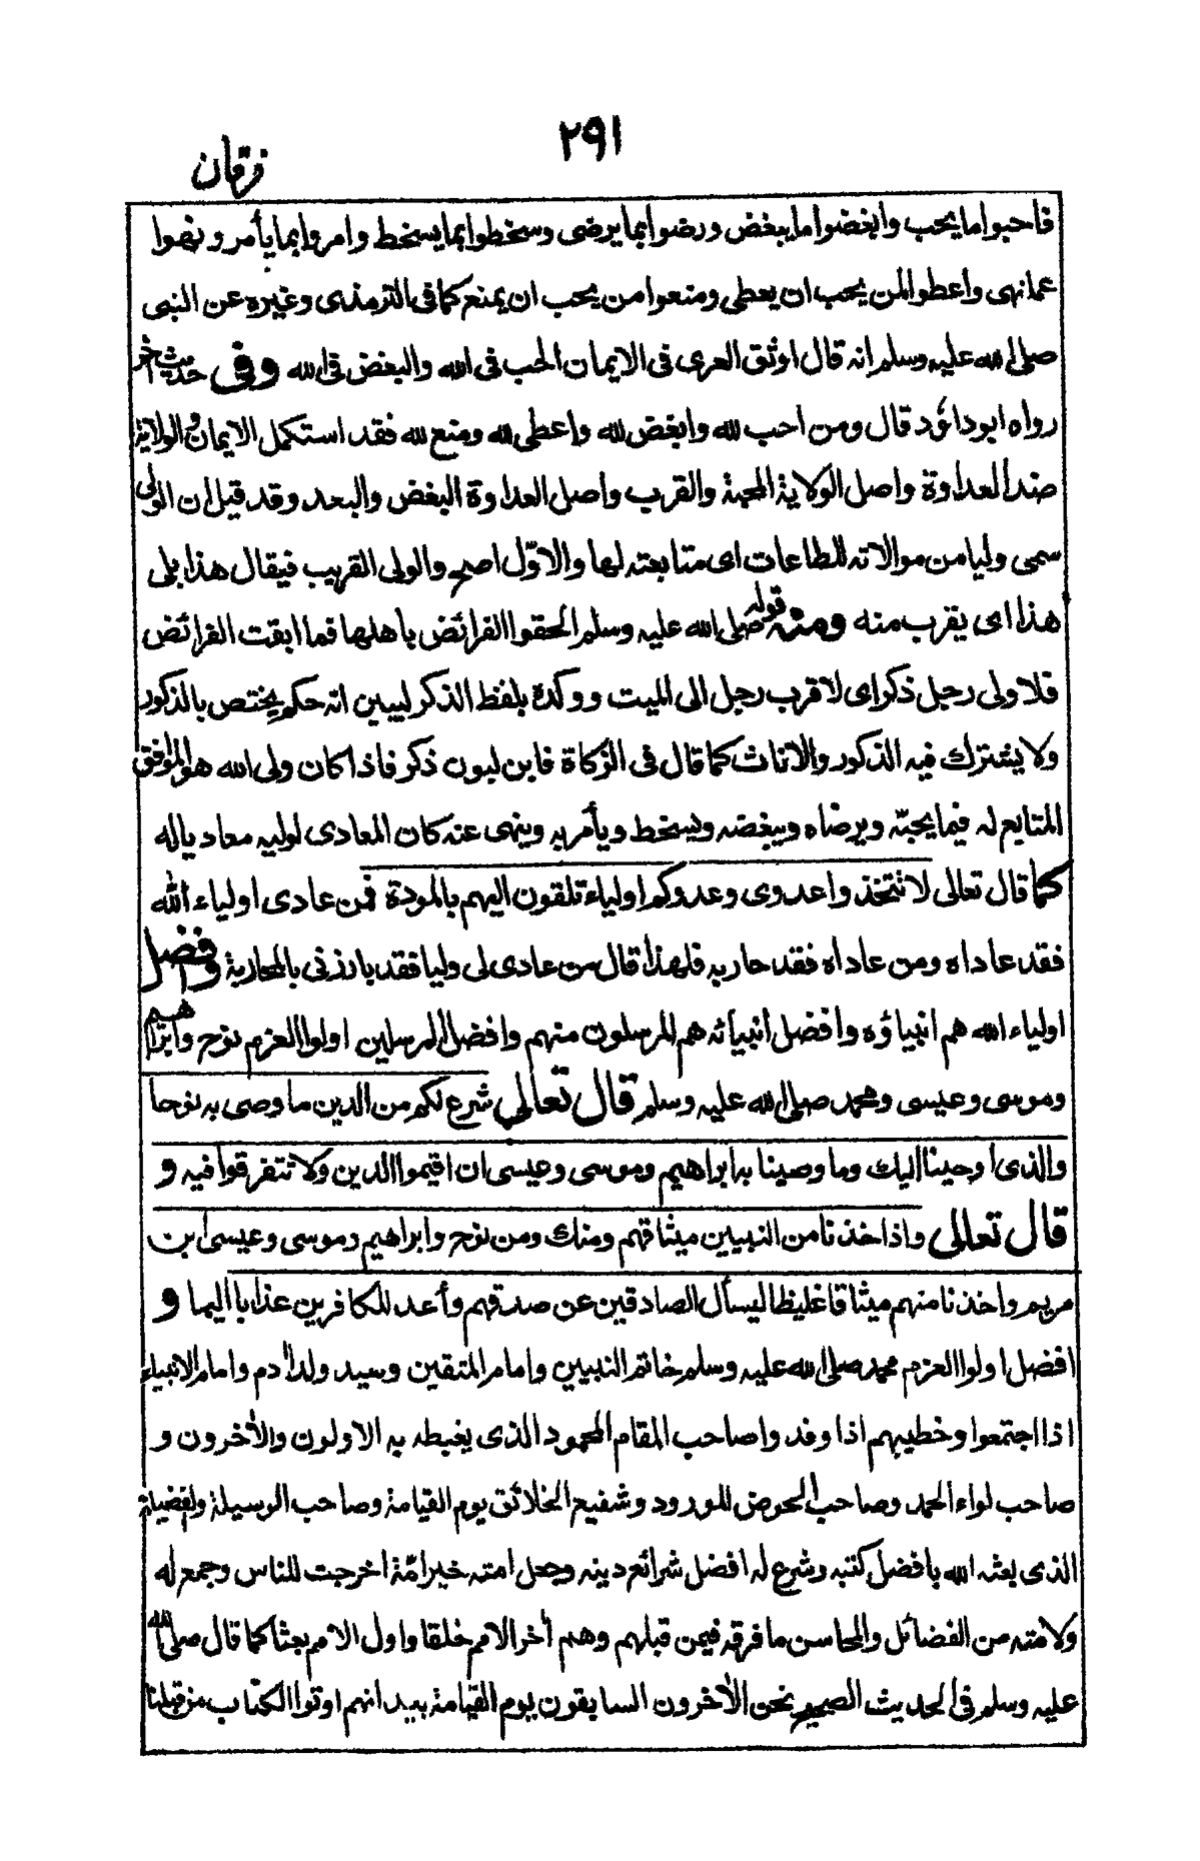 ٢٩١
فرقان
فاحبوا ما يحب وابغضوا ما يبغض ورضوا بما يرضى وسخطوا بما يسخط وامروا بما يأمر ونهوا
عما نهى واعطوا لمن يحب ان يعطى ومنعوا من يحب ان يمنع كما فى الترمذى وغيره عن النبى
صلى الله عليه وسلم انه قال اوثق العرى فى الايمان الحب فى الله والبغض فى الله وفى حديث آخر
رواه ابو داؤد قال ومن احب لله وابغض لله واعطى لله ومنع لله فقد استكمل الايمان والولاية
ضد العداوة واصل الولاية المحبة والقرب واصل العداوة البغض والبعد وقد قيل ان الولى
سمى وليا من موالاته للطاعات اى متابعته لها والاوّل اصح والولى القريب فيقال هذا يلى
هذا اى يقرب منه ومنه قوله صلى الله عليه وسلم الحقوا الفرائض باهلها فما ابقت الفرائض
فلاولى رجل ذكر اى لاقرب رجل الى الميت ووكده بلفظ الذكر ليبين انه حكم يختص بالذكور
ولا يشترك فيه الذكور والاناث كما قال فى الزكاة فابن لبون ذكر فاذا كان ولى الله هو الموافق
المتابع له فيما يحبّه ويرضاه ويبغضه ويسخط ويأمر به وينهى عنه كان المعادى لوليه معاديا له
كما قال تعالى لا تتخذوا عدوى وعدوكم اولياء تلقون اليهم بالمودة فمن عادى اولياء الله
فقد عاداه ومن عاداه فقد حاربه فلهذا قال من عادى لى وليا فقد بارزنى بالمحاربة وافضل
اولياء الله هم انبياؤه وافضل أنبيائه هم المرسلون منهم وافضل المرسلين اولوا العزم نوح وابراهيم
وموسى وعيسى ومحمد صلى الله عليه وسلم قال تعالى شرع لكم من الدين ما وصى به نوحا
والذى أوحينا اليك وما وصينا به ابراهيم وموسى وعيسى ان اقيموا الدين ولا تتفرقوا فيه و
قال تعالى واذ اخذنا من النبيين ميثاقهم ومنك ومن نوح وابراهيم وموسى وعيسى ابن
مريم واخذنا منهم ميثاقا غليظا ليسأل الصادقين عن صدقهم وأعد للكافرين عذابا اليما و
افضل اولوا العزم محمد صلى الله عليه وسلم خاتم النبيين وامام المتقين وسيد ولد أدم وامام الانبياء
اذا اجتمعوا وخطيبهم اذا وفدوا صاحب المقام المحمود الذى يغبطه به الاولون والأخرون و
صاحب لواء الحمد وصاحب الحوض المورود وشفيع الخلائق يوم القيامة وصاحب الوسيلة والفضيلة
الذى بعثه الله بافضل كتبه وشرع له افضل شرائع دينه وجعل امته خير امّة اخرجت للناس وجمع له
ولامته من الفضائل والمحاسن ما فرقه فيمن قبلهم وهم أخر الامم خلقا واول الامم بعثا كما قال صلى الله
عليه وسلم فى الحديث الصحيح نحن الأخرون السابقون يوم القيامة بيد انهم اوتوا الكتاب من قبلنا